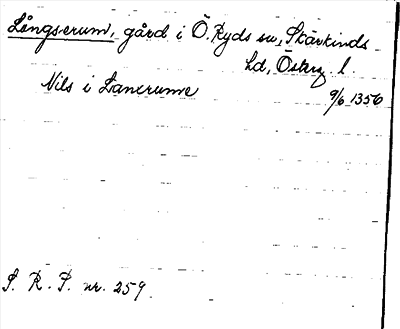 Långserum, gård i Ö. Ryds sn, Skärkinds
hd, Österg. l.
Nils i Lancrume 9/6 1356
S. R. P. nr. 259.